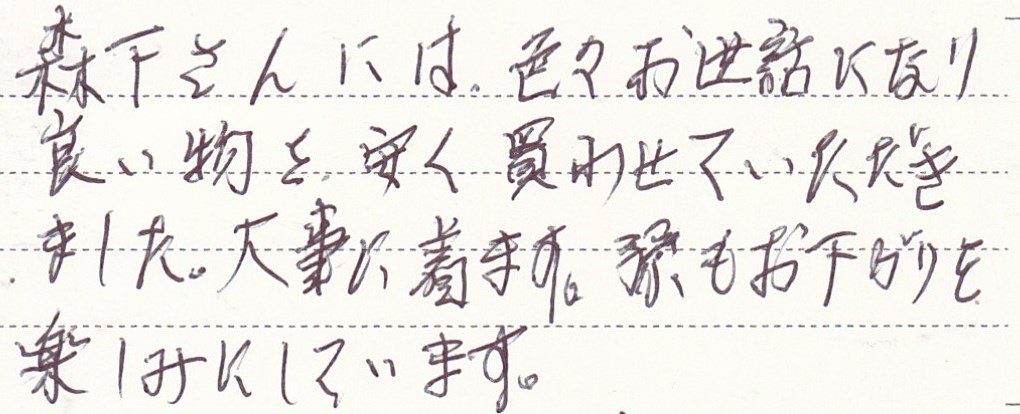 森下さんには、色々お世話になり
良い物を、安く買わせていただき
ました。大事に着ます。孫もお下がりを
楽しみにしています。